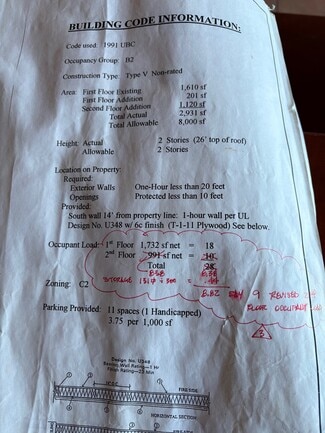 BUILDING CODE INFORMATION:
Code used: 1991 UBC
Occupancy Group: B2
Construction Type: Type V Non-rated
Area: First Floor Existing 1,610 sf
First Floor Addition 201 sf
Second Floor Addition 1,120 sf
Total Actual 2,931 sf
Total Allowable 8,000 sf
Height: Actual 2 Stories (26' top of roof)
Allowable 2 Stories
Location on Property:
Required:
Exterior Walls One-Hour less than 20 feet
Openings Protected less than 10 feet
Provided:
South wall 14' from property line: 1-hour wall per UL
Design No. U348 w/ 6c finish (T-1-11 Plywood) See below.
Occupant Load: 1st Floor 1,732 sf net = 18
2nd Floor 991 sf net = 10
Total 28
STORAGE
8.82 SAY 9 REVISED 2nd
Zoning: C2
FLOOR OCCUPANT
Parking Provided: 11 spaces (1 Handicapped)
3.75 per 1,000 sf
Design No. U348
Bearing Wall Rating—1 Hr
Finish Rating—
FIRE SIDE
HORIZONTAL SECTION